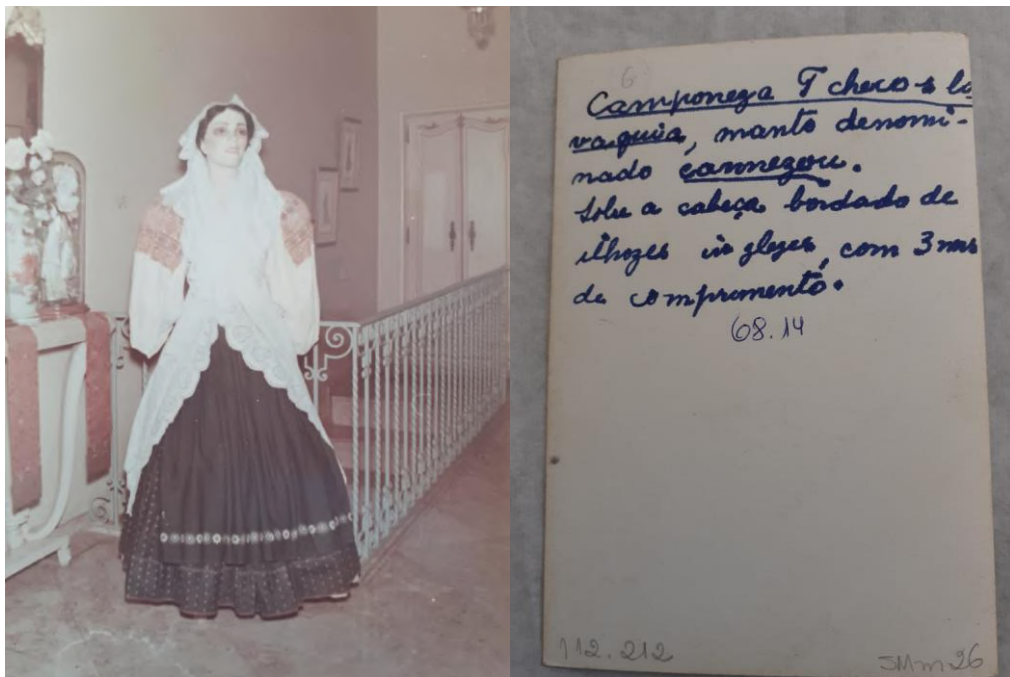 6
Camponeza Tcheco-slo
vaquia, manto denomi-
nado cannezou.
Sobre a cabeça bordado de
ilhozes inglezes, com 3 mrs
de comprimento.
68.14
112.212
JMm26